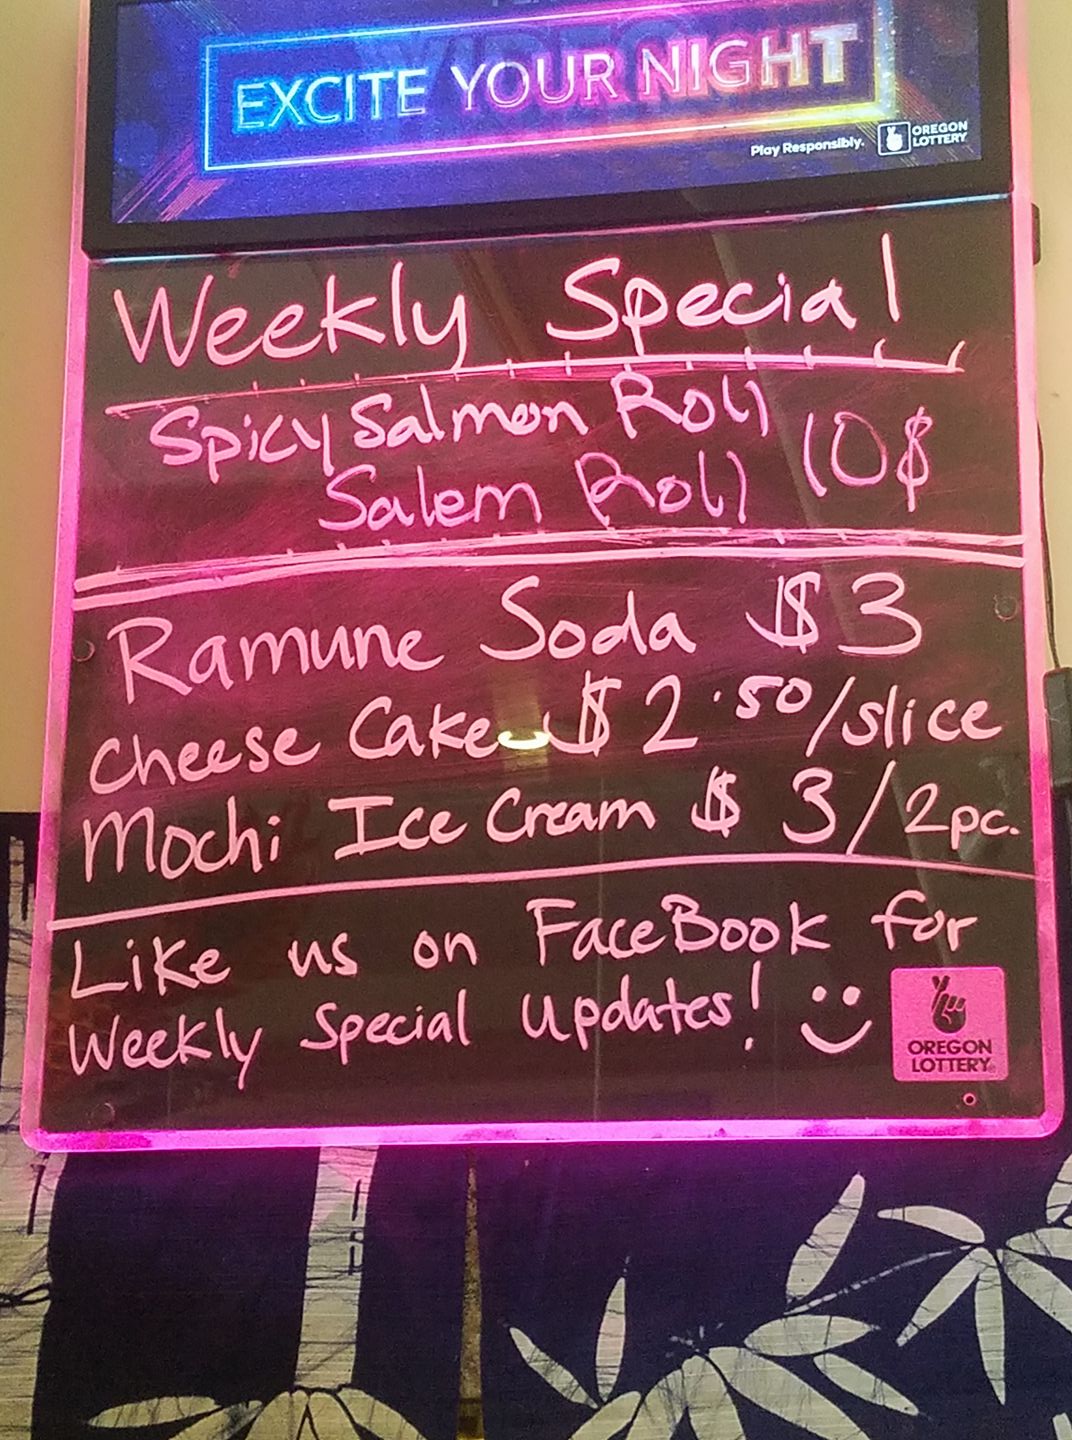 EXCITE YOUR NIGHT
Play Responsibly.
OREGON
LOTTERY
Weekly Special
Spicy Salmon Roll
Salem Roll 10$
Ramune Soda $3
Cheese Cake $2.50/slice
Mochi Ice Cream $3/2pc.
Like us on FaceBook for
Weekly Special Updates!
OREGON
LOTTERY